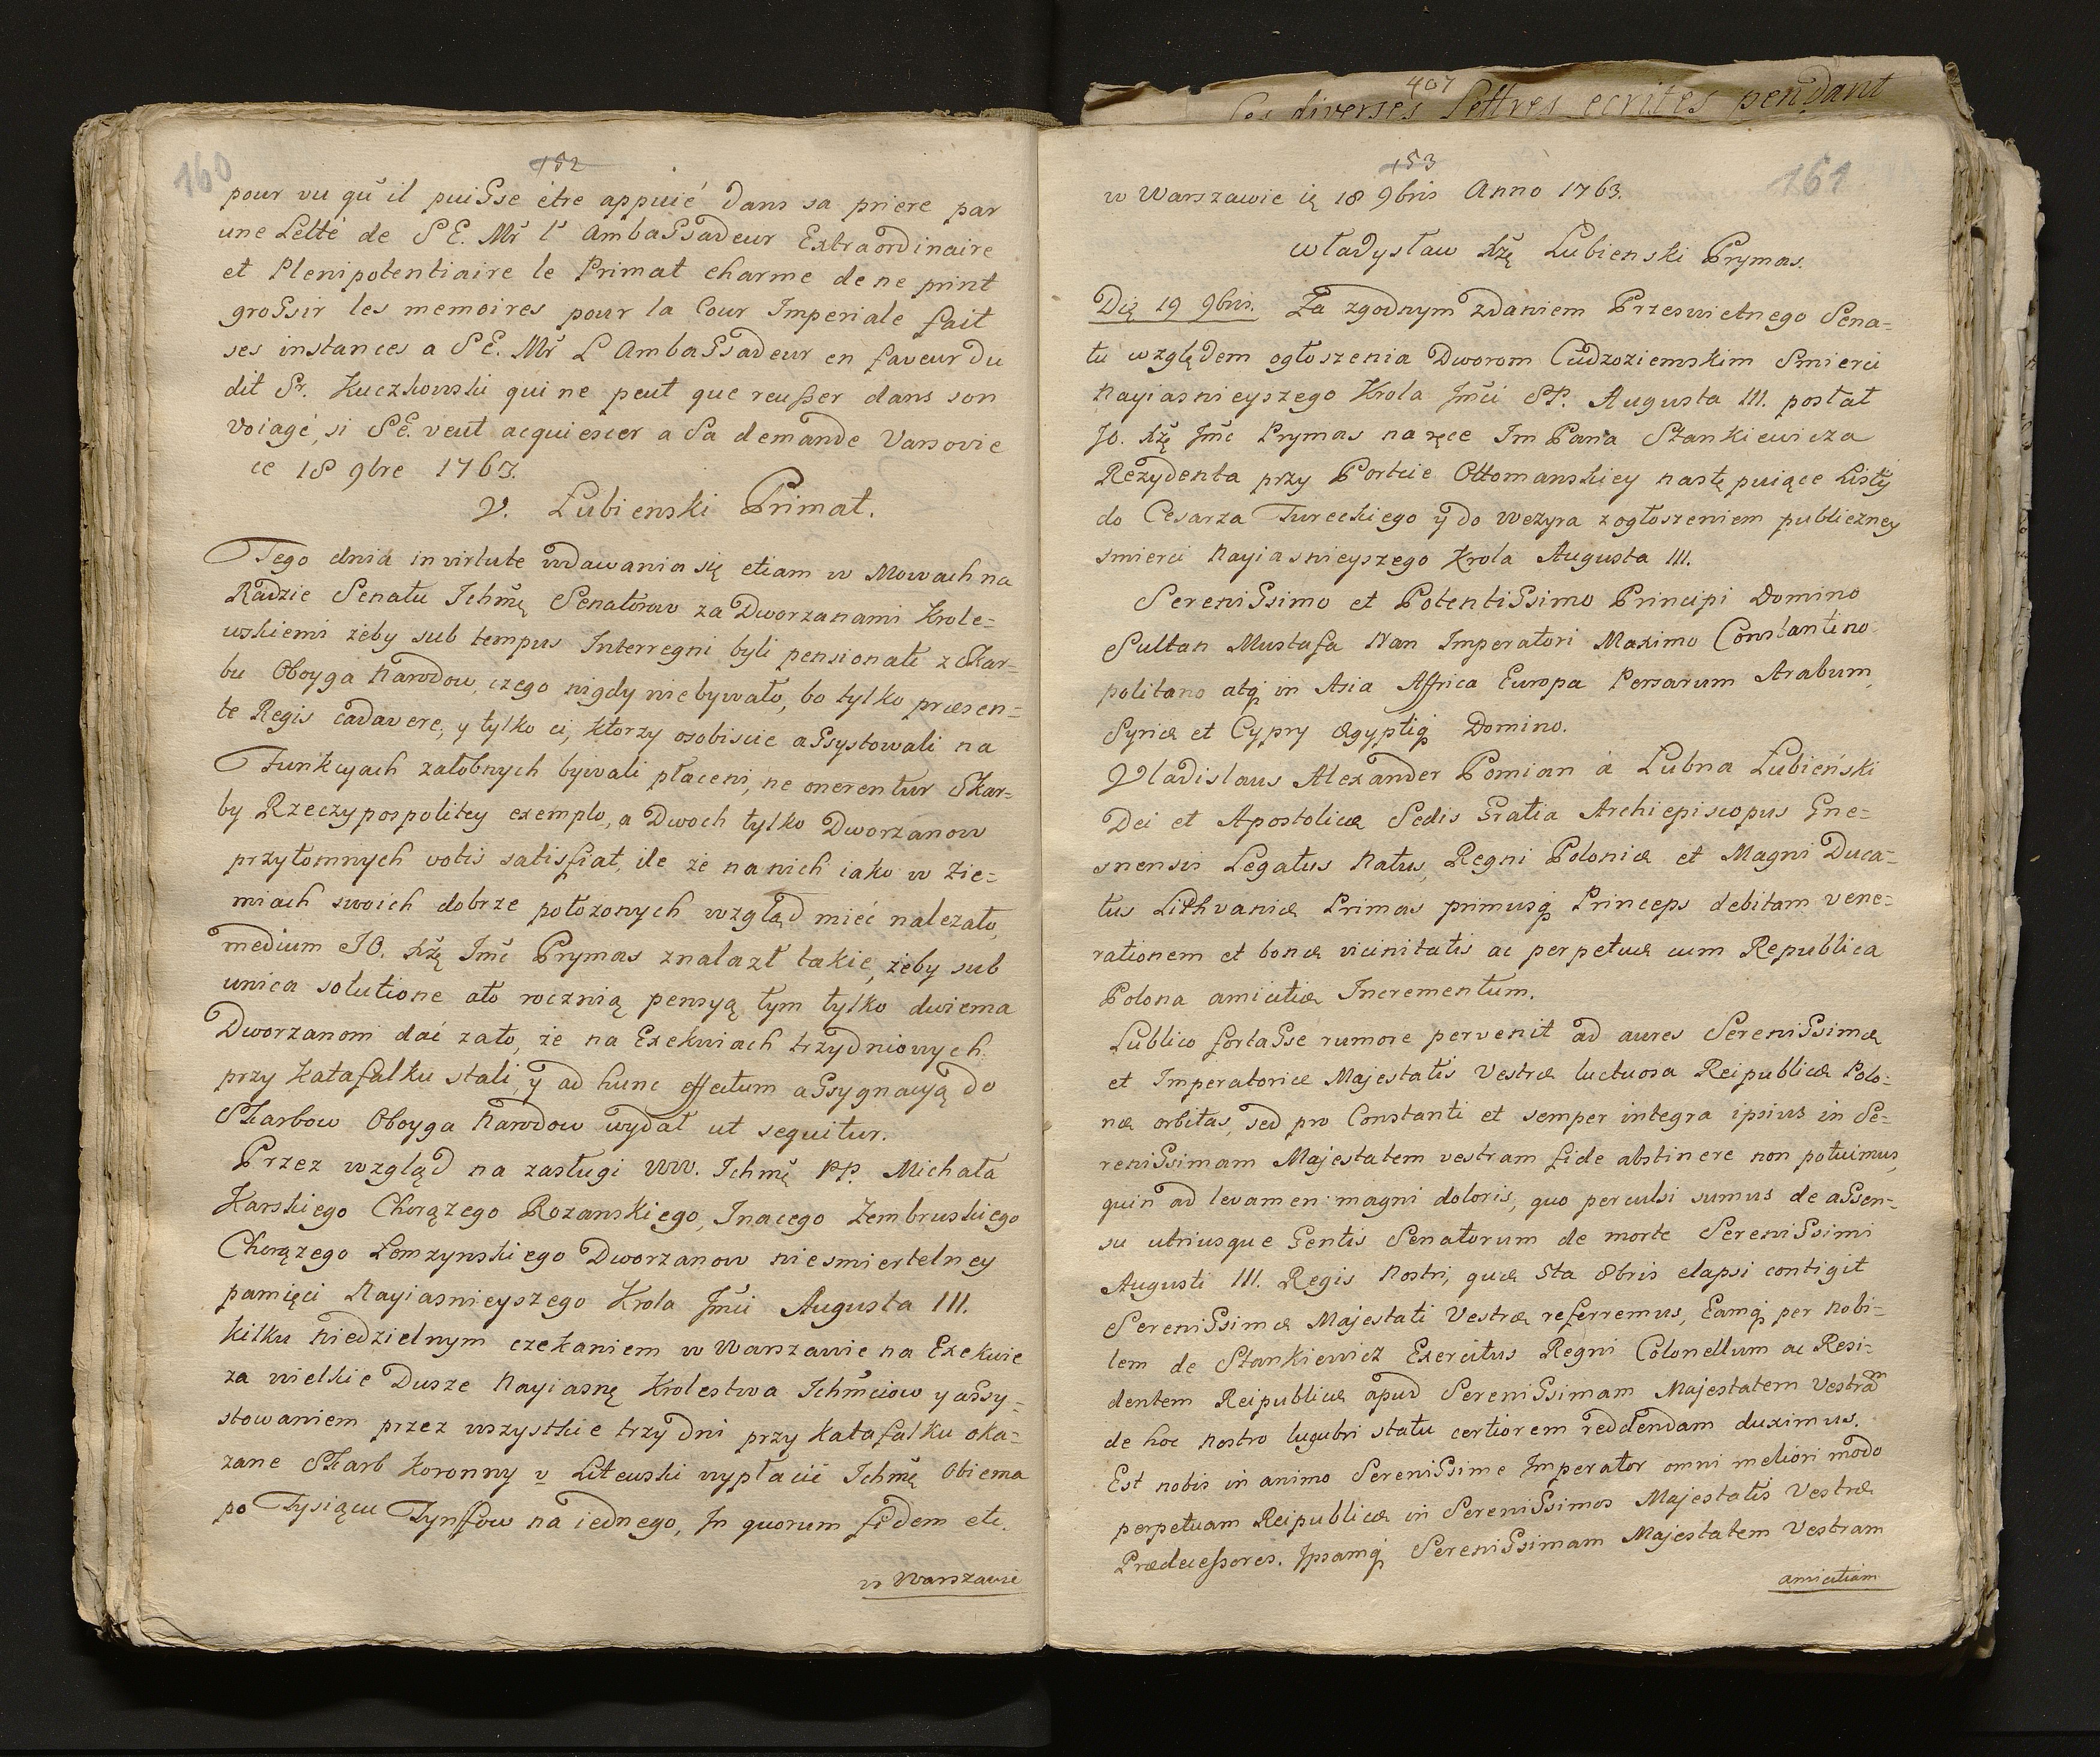 160
152
pour vu qu'il puisse être appuié dans sa priere par
une Lette de S E. Mr l' Ambassadeur Extraordinaire
et Plenipotentiaire le Primat charme de ne print
grossir les memoires pour la Cour Imperiale fait
ses instances a S E. Mr L Ambassadeur en faveur du
dit Sr. Kuczkowski qui ne peut que reusser dans son
voiagé, si S E. veut acquiescer a Sa demande Varsovie
ce 18 9bre 1763.
V. Łubienski Primat.
Tego dnia in virtute wdawania się etiam w Mowach na
Radzie Senatu Ichmę Senatorow za Dworzanami Krole-
wskiemi żeby sub tempus Interregni byli pensionati z Skar-
bu Oboyga Narodow, czego nigdy nie bywało, bo tylko præsen-
te Regis cadavere, y tylko ci, ktorzy osobiscie assystowali na
Funkcyach załobnych bywali płaceni, ne onerentur Skar-
by Rzeczypospolitey exemplo, a Dwoch tylko Dworzanow
przytomnych votis satisfiat, ile że na nich iako w Zie-
miach swoich dobrze położonych wzgląd mieć nalezało,
medium JO. Xżę Jmć Prymas znalazł takie, żeby sub
unica solutione ato roczną pensyą tym tylko dwiema
Dworzanom dać zato, że na Exekwiach trzydniowych
przy Katafalku stali, y ad hunc effectum assygnacyą do
Skarbow Oboyga Narodow wydał ut sequitur.
Przez wzgląd na zasługi WW. Ichmę PP. Michała
Karskiego Chorązego Rozanskiego, Inacego Zembruskiego
Chorązego Łomzynskiego Dworzanow niesmiertelney
pamięci Nayiasnieyszego Krola Jmci Augusta III.
kilku niedzielnym czekaniem w Warszawie na Exekwie
za wielkie Dusze Nayiasnę Krolestwa Ichmciow y assy-
stowaniem przez wszystkie trzy dni przy katafalku oka-
zane Skarb Koronny y Litewski wypłacić Ichmę Obiema
po Tysiącu Tynffow na iednego, In quorum fidem etc.
w Warszawie
407
Les diverses Lettres ecrites pendant
153
161
w Warszawie ię 18 9bris Anno 1763.
Władysław Xżę Łubienski Prymas.
Dię 19 9bris. Za zgodnym zdaniem Przeswietnego Sena-
tu względem ogłoszenia Dworom Cudzoziemskim Smierci
Nayiasnieyszego Krola Jmci SP. Augusta III. posłał
JO. Xżę Jmć Prymas na ręce Im Pana Stankiewicza
Rezydenta przy Porcie Ottomanskiey następuiące Listy
do Cesarza Tureckiego y do Wezyra z ogłoszeniem publiczney
smierci Nayiasnieyszego Krola Augusta III.
Serenissimo et Potentissimo Principi Domino
Sultan Mustafa Han Imperatori Maximo Constantino
politano atq in Asia Affrica Europa Persarum Arabum
Syriæ et Cypry Ægyptiq Domino.
Vladislaus Alexander Pomian à Łubna Łubieński
Dei et Apostolicæ Sedis Gratia Archiepiscopus Gne-
snensis Legatus Natus, Regni Poloniæ et Magni Duca-
tus Lithvaniæ Primas primusq Princeps debitam vene-
rationem et bonæ vicinitatis ac perpetuæ cum Republica
Polona amicitiæ Incrementum.
Publico fortasse rumore pervenit ad aures Serenissimæ
et Imperatoriæ Majestatis Vestræ luctuosa Reipublicæ Polo-
næ orbitas, sed pro Constanti et semper integra ipsius in Se-
renissimam Majestatem vestram fide abstinere non potuimus,
quin ad levamen magni doloris, quo perculsi sumus de assen-
su utriusque Gentis Senatorum de morte Serenissimi
Augusti III. Regis Nostri, quæ 5ta 8bris elapsi contigit
Serenissimæ Majestati Vestræ referremus, Eamq per Nobi-
lem de Stankiewicz Exercitus Regni Colonellum ac Resi-
dentem Reipublicæ apud Serenissimam Majestatem Vestram
de hoc nostro lugubri statu certiorem reddendam duximus.
Est nobis in animo Serenissime Imperator omni meliori modo
perpetuam Reipublicæ in Serenissimos Majestatis Vestræ
Prædecessores. Ipsamq Serenissimam Majestatem Vestram
amicitiam